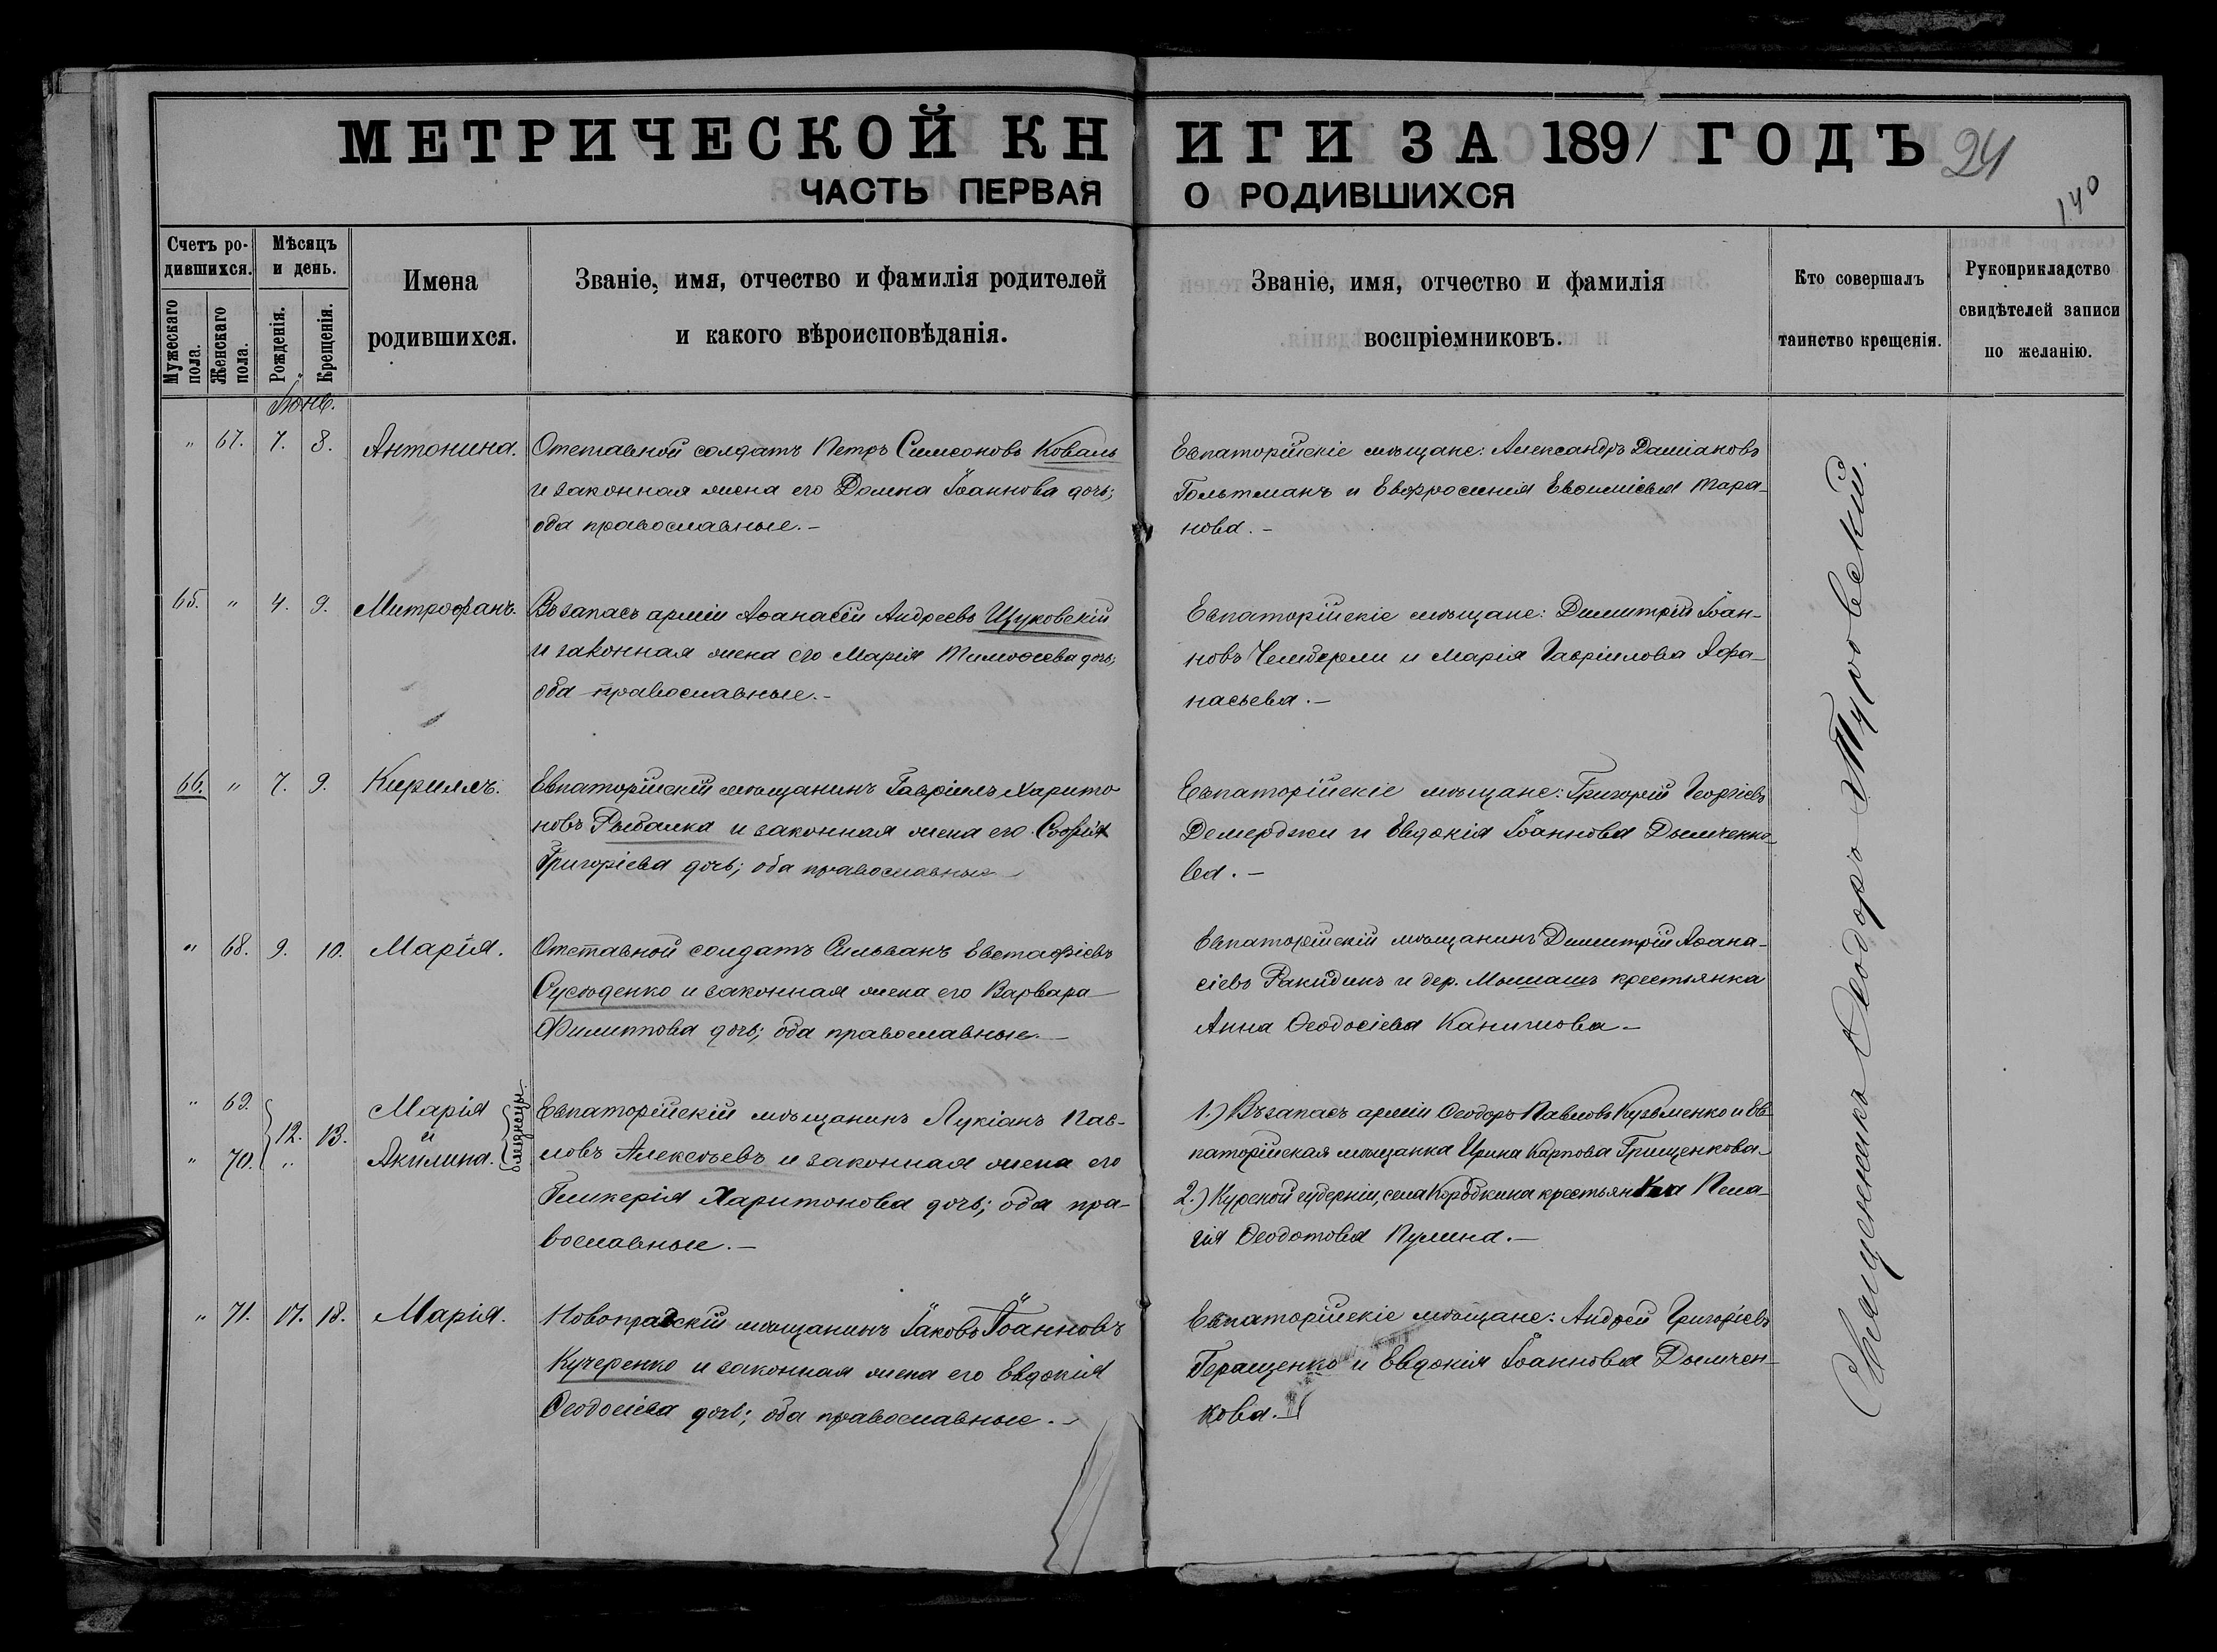 МЕТРИЧЕСКОЙ КНИГИ ЗА 1891 ГОДЪ
24
140
ЧАСТЬ ПЕРВАЯ О РОДИВШИХСЯ
Счетъ ро-
дившихся.
Мужескаго
пола.
Женскаго
пола.
Мѣсяцъ
и день.
Рожденія.
Крещенія.
Имена
родившихся.
Званіе, имя, отчество и фамилія родителей
и какого вѣроисповѣданія.
Званіе, имя, отчество и фамилія
воспріемниковъ.
Кто совершалъ
таинство крещенія.
Рукоприкладство
свидѣтелей записи
по желанію.
Іюнь.
" 67. 7. 8. Антонина.
Отставной солдатъ Петръ Симеоновъ Коваль
и законная жена его Домна Іоаннова дочь;
оба православные.-
Евпаторійскіе мѣщане: Александръ Даміановъ
Гольтманъ и Евфросинія Евѳиміева Тара-
нова.-
65. " 4. 9. Митрофанъ.
Въ запасѣ арміи Аѳанасій Андреевъ Щуковскій
и законная жена его Марія Тимоѳеева дочь;
оба православные.-
Евпаторійскіе мѣщане: Димитрій Іоан-
новъ Челидерли и Марія Гавріилова Афа-
насьева.-
66. " 7. 9. Кириллъ.
Евпаторійскій мѣщанинъ Гавріилъ Харито-
новъ Рыбалка и законная жена его Софія
Григоріева дочь; оба православные
Евпаторійскіе мѣщане: Григорій Георгіевъ
Демерджи и Евдокія Іоаннова Дымченко-
ва.-
" 68. 9. 10. Марія.
Отставной солдатъ Сильванъ Евстафіевъ
Сусѣденко и законная жена его Варвара
Филиппова дочь; оба православные.-
Евпаторійскій мѣщанинъ Димитрій Аѳана-
сіевъ Ракидинъ и дер. Мошашъ крестьянка
Анна Ѳеодосіева
" 69. Марія
12. 13. и
" 70. " Акилина.
близнецы.
Евпаторійскій мѣщанинъ Лукіанъ Пав-
ловъ Алексѣевъ и законная жена его
Гликерія Харитонова дочь; оба пра-
вославные.-
1.) Въ запасѣ арміи Ѳеодоръ Павловъ Кузьменко и Ев-
паторійская мѣщанка Ирина Карпова Грищенкова-
2.) Курской губерніи, села Коробкина крестьянка Пела-
гія Ѳеодотова Пулина.-
" 71. 17. 18. Марія.
мѣщанинъ Іаковъ Іоанновъ
Кучеренко и законная жена его Евдокія
Ѳеодосіева дочь; оба православные.-
Евпаторійскіе мѣщане: Андрей Григоріевъ
Геращенко и Евдокія Іоаннова Дымчен-
кова.-
Священникъ Ѳеодоръ Туровскій.